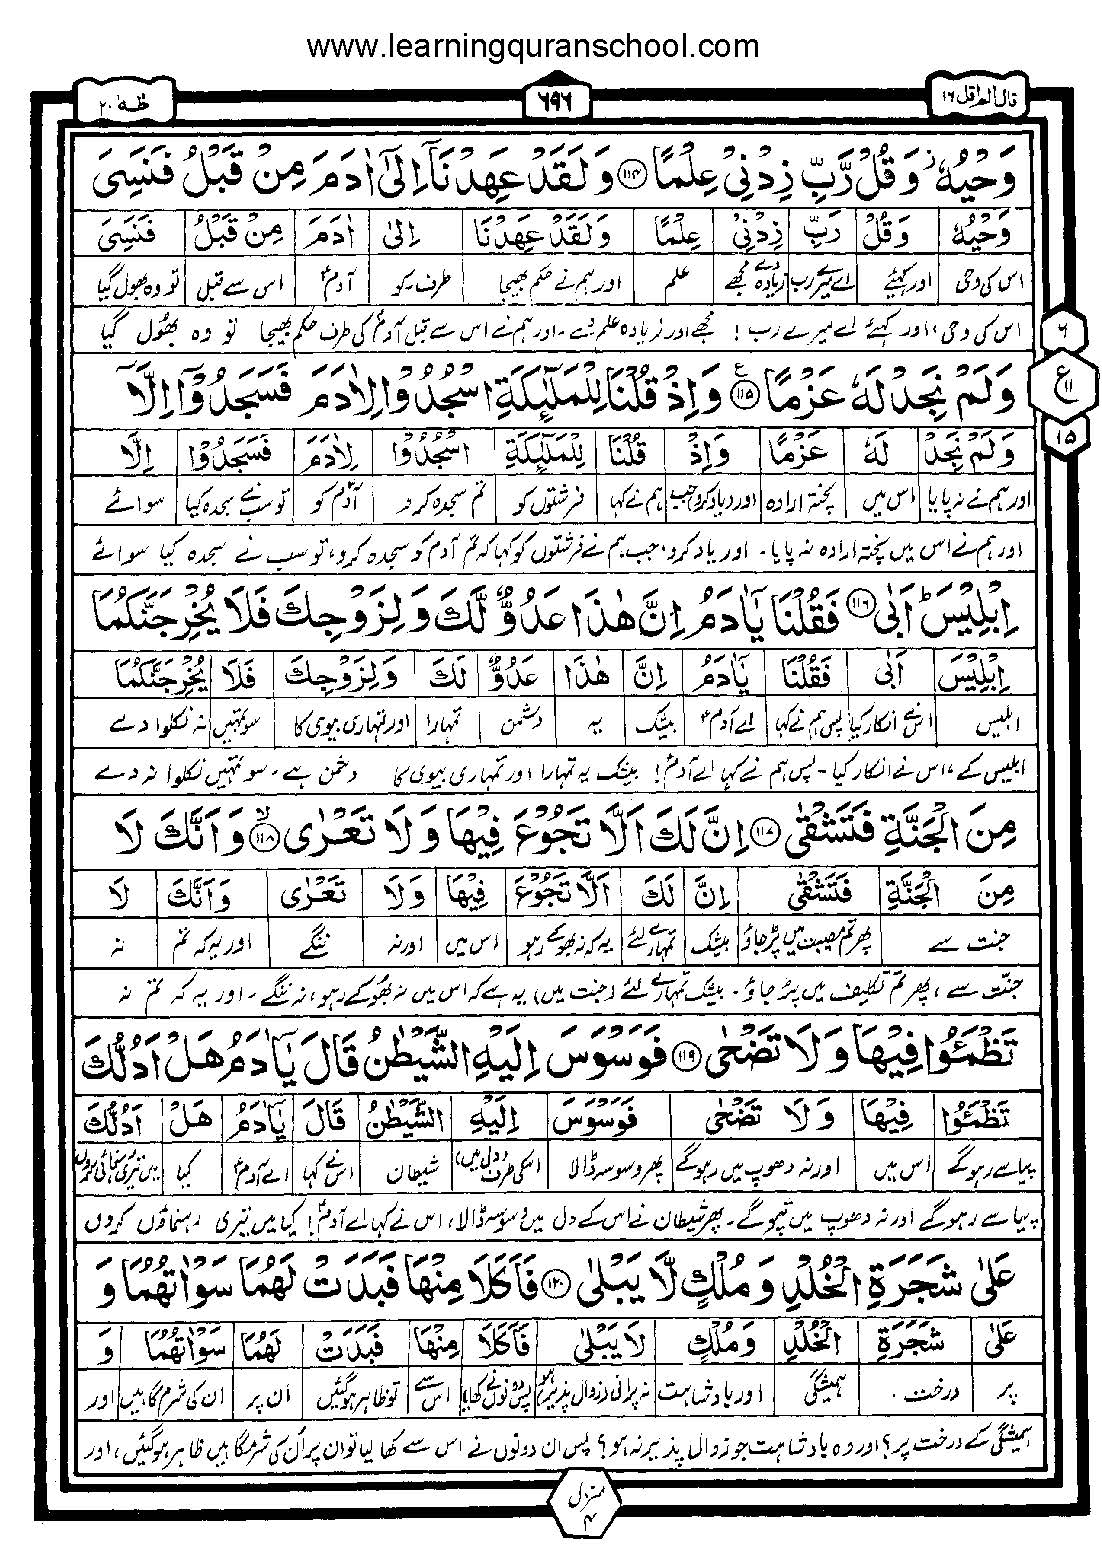 www.learningquranschool.com
قال الم اقل ١٦
٦٩٦
طٰهٰ ٢٠
وَحْيُهٗ ز وَقُلْ رَّبِّ زِدْنِيْ عِلْمًا ١١٤ وَلَقَدْ عَهِدْنَاۤ اِلٰٓى اٰدَمَ مِنْ قَبْلُ فَنَسِيَ
وَحْيُهٗ وَقُلْ رَبِّ زِدْنِيْ عِلْمًا وَلَقَدْ عَهِدْنَا اِلٰى اٰدَمَ مِنْ قَبْلُ فَنَسِيَ
اس کی وحی اور کہئے اے میرے رب زیادہ دے مجھے علم اور ہم نے حکم بھیجا طرف۔کو آدمؑ اس سے قبل تو وہ بھول گیا
اس کی وحی، اور کہئے اے میرے رب! مجھے اور زیادہ علم دے۔ اور ہم نے اس سے قبل آدمؑ کی طرف حکم بھیجا تو وہ بھُول گیا
٦
وَلَمْ نَجِدْ لَهٗ عَزْمًا ١١٥ ع وَاِذْ قُلْنَا لِلْمَلٰٓئِكَةِ اسْجُدُوْا لِاٰدَمَ فَسَجَدُوْۤا اِلَّاۤ
ع ١١
وَلَمْ نَجِدْ لَهٗ عَزْمًا وَاِذْ قُلْنَا لِلْمَلٰٓئِكَةِ اسْجُدُوْا لِاٰدَمَ فَسَجَدُوْۤا اِلَّا
١٥
اور ہم نے نہ پایا اس میں پختہ ارادہ اور (یاد کرو) جب ہم نے کہا فرشتوں کو تم سجدہ کرو آدمؑ کو تو سب نے سجدہ کیا سوائے
اور ہم نے اس میں پختہ ارادہ نہ پایا۔ اور یاد کرو، جب ہم نے فرشتوں کو کہا کہ تم آدم کو سجدہ کرو، تو سب نے سجدہ کیا سوائے
اِبْلِيْسَ ؕ اَبٰى ١١٦ فَقُلْنَا يٰۤاٰدَمُ اِنَّ هٰذَا عَدُوٌّ لَّكَ وَلِزَوْجِكَ فَلَا يُخْرِجَنَّكُمَا
اِبْلِيْسَ اَبٰى فَقُلْنَا يٰۤاٰدَمُ اِنَّ هٰذَا عَدُوٌّ لَكَ وَلِزَوْجِكَ فَلَا يُخْرِجَنَّكُمَا
ابلیس اس نے انکار کیا پس ہم نے کہا اے آدمؑ بیشک یہ دشمن تمہارا اور تمہاری بیوی کا سو تمہیں نہ نکلوا دے
ابلیس کے، اس نے انکار کیا۔ پس ہم نے کہا اے آدمؑ! بیشک یہ تمہارا اور تمہاری بیوی کا دشمن ہے۔ سو تمہیں نکلوا نہ دے
مِنَ الْجَنَّةِ فَتَشْقٰى ١١٧ اِنَّ لَكَ اَلَّا تَجُوْعَ فِيْهَا وَلَا تَعْرٰى ١١٨ لا وَاَنَّكَ لَا
مِنَ الْجَنَّةِ فَتَشْقٰى اِنَّ لَكَ اَلَّا تَجُوْعَ فِيْهَا وَلَا تَعْرٰى وَاَنَّكَ لَا
جنت سے پھر تم مصیبت میں پڑ جاؤ بیشک تمہارے لئے یہ کہ نہ بھوکے رہو اس میں اور نہ ننگے اور یہ کہ تم نہ
جنّت سے، پھر تم تکلیف میں پڑ جاؤ۔ بیشک تمہارے لئے (جنت میں) یہ ہے کہ اس میں نہ بھُوکے رہو، نہ ننگے۔ اور یہ کہ تم نہ
تَظْمَؤُا فِيْهَا وَلَا تَضْحٰى ١١٩ فَوَسْوَسَ اِلَيْهِ الشَّيْطٰنُ قَالَ يٰۤاٰدَمُ هَلْ اَدُلُّكَ
تَظْمَؤُا فِيْهَا وَلَا تَضْحٰى فَوَسْوَسَ اِلَيْهِ الشَّيْطٰنُ قَالَ يٰۤاٰدَمُ هَلْ اَدُلُّكَ
پیاسے رہو گے اس میں اور نہ دھوپ میں رہو گے پھر وسوسہ ڈالا اسکی طرف (دل میں) شیطان اس نے کہا اے آدمؑ کیا میں تیری رہنمائی کروں
پیاسے رہو گے اور نہ دھوپ میں تپو گے۔ پھر شیطان نے اس کے دل میں وسوسہ ڈالا، اس نے کہا اے آدمؑ! کیا میں تیری رہنماؤں کروں
عَلٰى شَجَرَةِ الْخُلْدِ وَمُلْكٍ لَّا يَبْلٰى ١٢٠ فَاَكَلَا مِنْهَا فَبَدَتْ لَهُمَا سَوْاٰتُهُمَا وَ
عَلٰى شَجَرَةِ الْخُلْدِ وَمُلْكٍ لَا يَبْلٰى فَاَكَلَا مِنْهَا فَبَدَتْ لَهُمَا سَوْاٰتُهُمَا وَ
پر درخت۔ ہمیشگی اور بادشاہت نہ پرانی (زوال پذیر) ہو پس دونوں نے کھایا اس سے تو ظاہر ہو گئیں ان پر ان کی شرمگاہیں اور
ہمیشگی کے درخت پر؟ اور وہ بادشاہت جو زوال پذیر نہ ہو؟ پس ان دونوں نے اس سے کھا لیا تو ان پر اُن کی شرمگاہیں ظاہر ہو گئیں، اور
منزل ٤